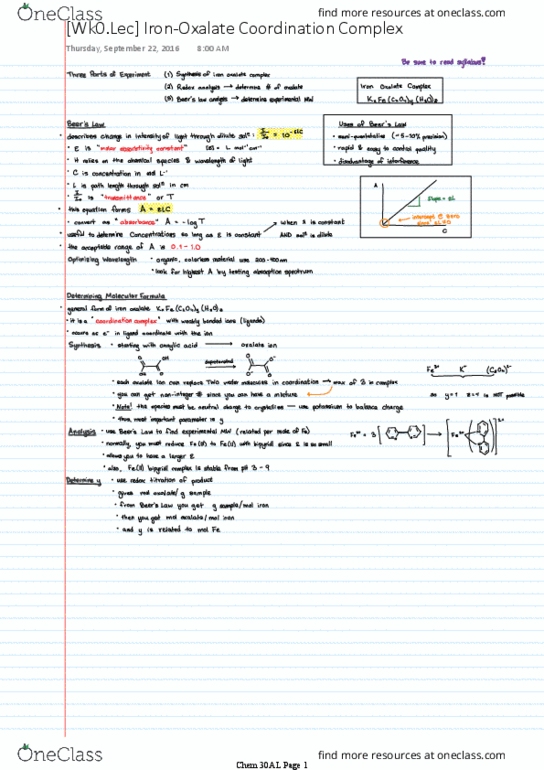 OneClass
find more resources at oneclass.com
[Wk0.Lec] Iron-Oxalate Coordination Complex
Thursday, September 22, 2016 8:00 AM
Be sure to read syllabus!
Three Parts of Experiment (1) Synthesis of iron oxalate complex
(2) Redox analysis → determine # of oxalate
(3) Beer's law analysis → determine experimental MW
Iron Oxalate Complex
KxFe(C2O4)y(H2O)z
Beer's Law
• describes change in intensity of light through dilute sol
• E is "molar absorptivity constant" [E] = L mol⁻¹cm⁻¹
• it relies on the chemical species & wavelength of light
• C is concentration in mol L⁻¹
• L is path length through sol in cm
is "transmittance" or T
• this equation forms A = ELC
• convert as "absorbance" A = -log T
• useful to determine concentrations so long as E is constant
when E is constant
AND sol is dilute
• the acceptable range of A is 0.1-1.0
Optimizing Wavelength • organic, colorless material use 200-400nm
• look for highest A by testing absorption spectrum
Uses of Beer's Law
• semi-quantitative (~5-10% precision)
• rapid & easy to control quality
• disadvantage of interference
A
Slope = EL
intercept @ zero
C
Determining Molecular Formula
• general form of iron oxalate KxFe(C2O4)y(H2O)z
• it is a "coordination complex" with weakly bonded ions (ligands)
• occurs as e⁻ in ligand coordinate with the ion
Synthesis • starting with oxalic acid → oxalate ion
deprotonated
• each oxalate ion can replace TWO water molecules in coordination → max of 3 in complex
• you can get non-integer # since you can have a mixture
• Note! the species must be neutral charge to crystallize — use potassium to balance charge
• thus, most important parameter is y
Fe³⁺ K⁺ (C2O4)²⁻
so y=1 z=4 is NOT possible
Analysis • use Beer's Law to find experimental MW (related per mole of Fe)
• normally, you must reduce Fe(III) to Fe(II) with bipyridil since E is so small
• allows you to have a larger E
• also, Fe(II) bipyridil complex is stable from pH 3-9
Determine y • use redox titration of product
• gives mol oxalate/g sample
• from Beer's Law you get g sample/mol iron
• then you get mol oxalate/mol iron
• and y is related to mol Fe
OneClass
find more resources at oneclass.com
Chem 30AL Page 1